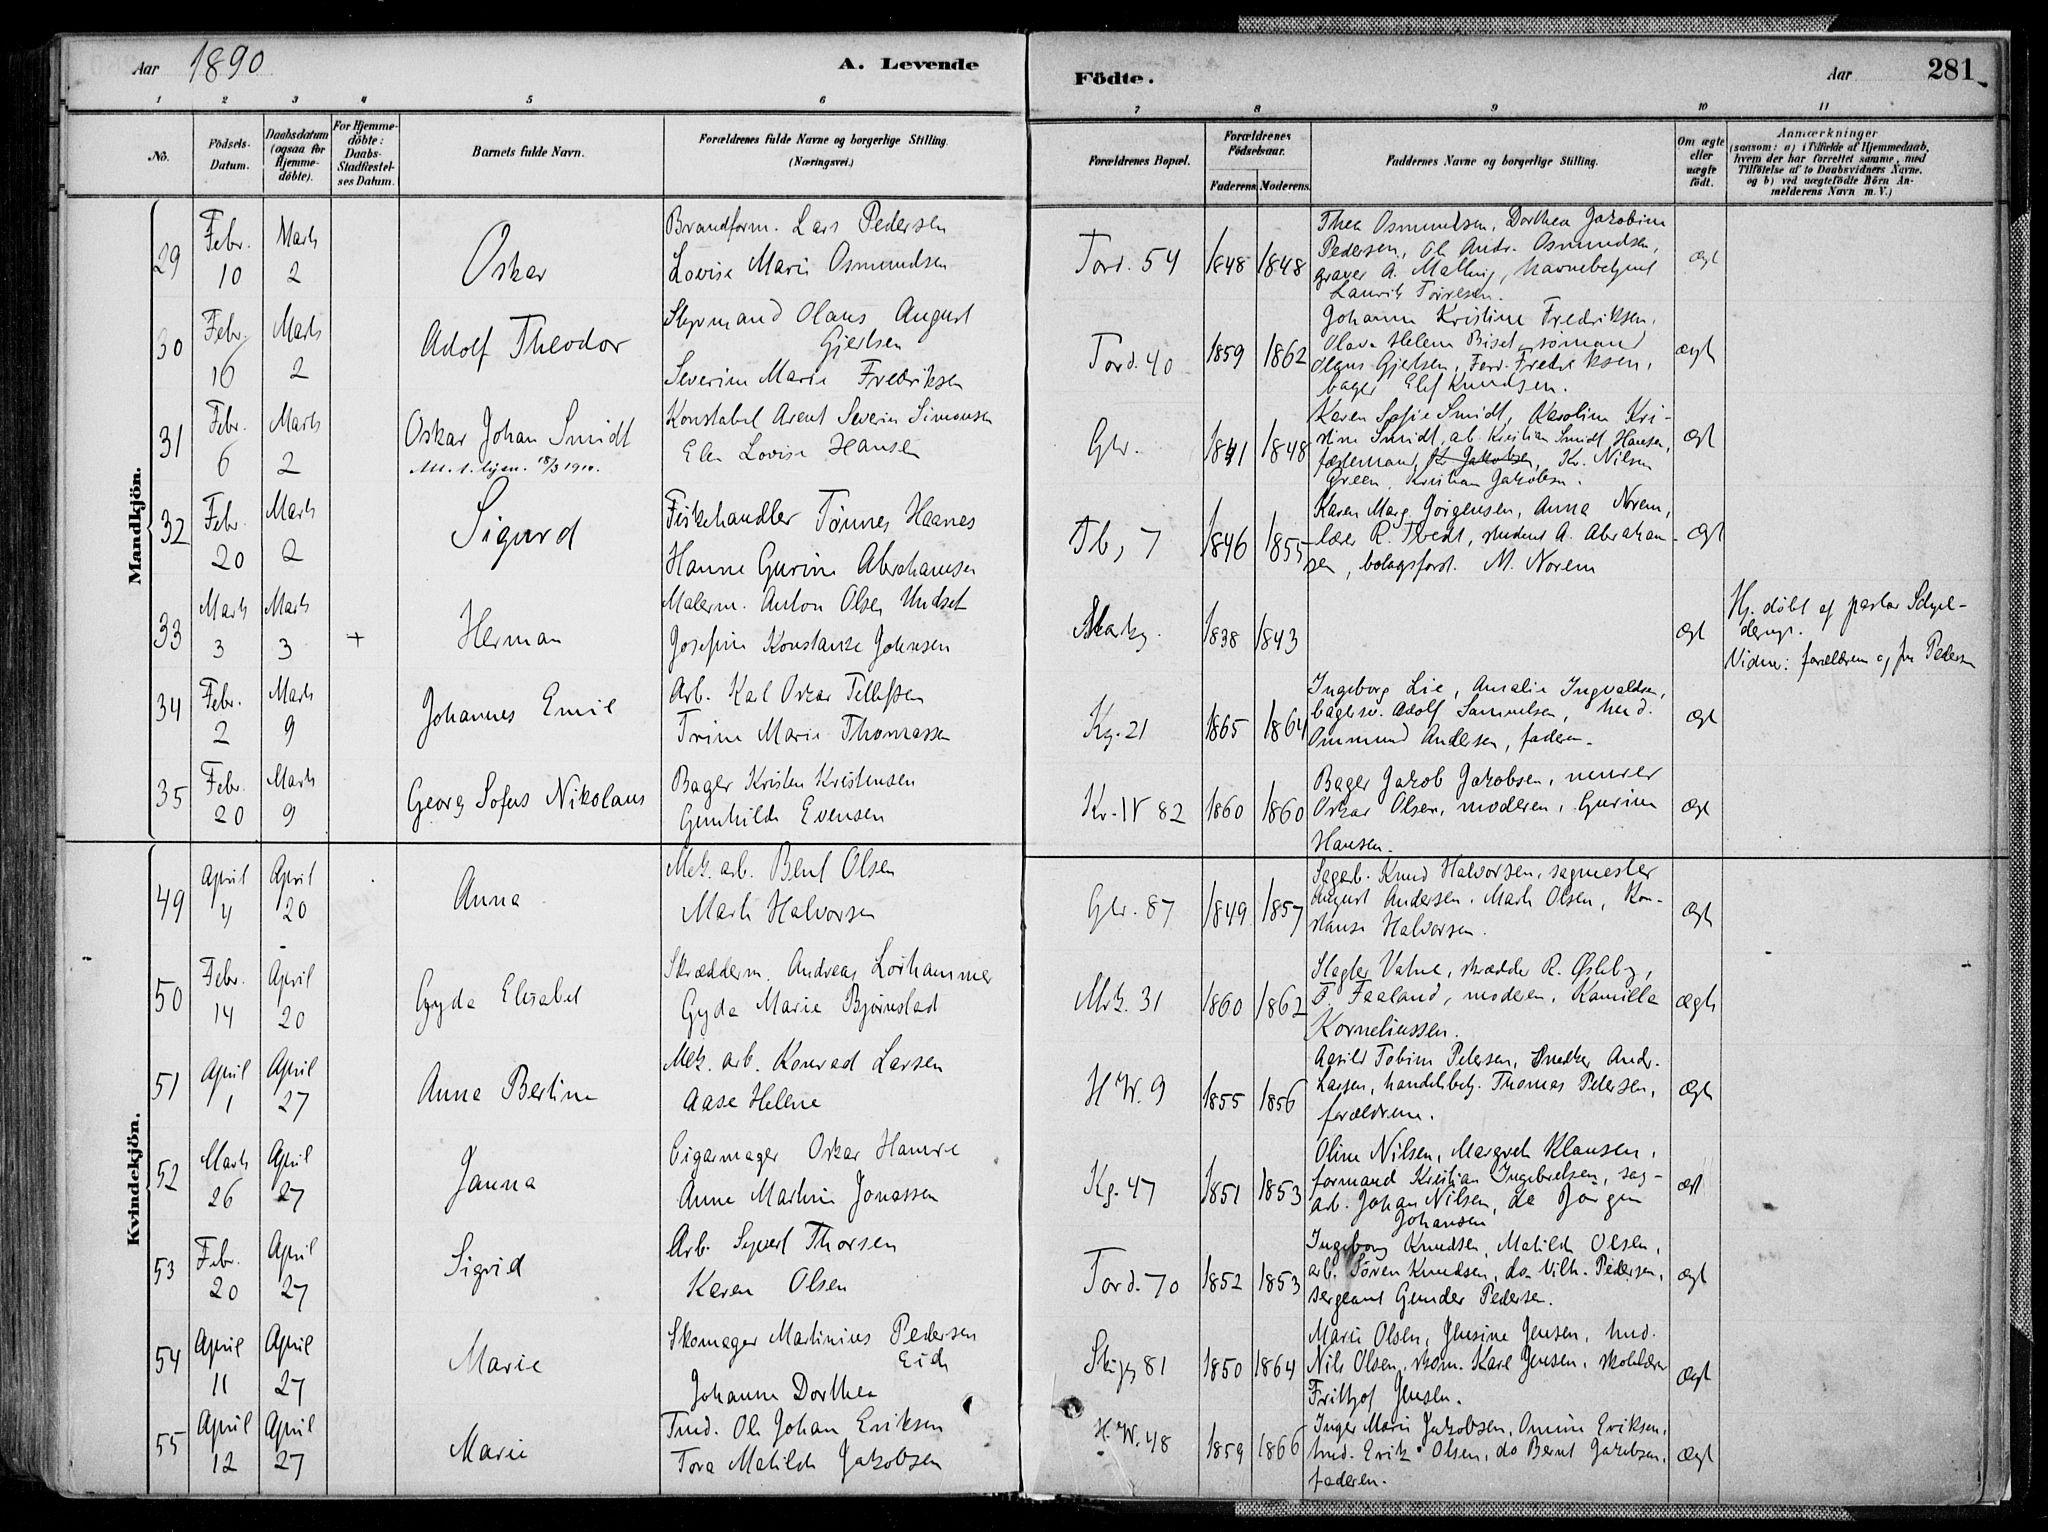 Aar 1890
A. Levende
Födte.
Aar
281
1 2 3 4 5 6 7 8 9 10 11
No.
Födsels-
Datum.
Daabsdatum
(ogsaa for
Hjemme-
döbte).
For Hjemme-
döbte:
Daabs-
Stadfæstel-
ses Datum.
Barnets fulde Navn.
Forældrenes fulde Navne og borgerlige Stilling.
(Næringsvei.)
Forældrenes Bopæl.
Forældrenes
Födselsaar.
Faderens.
Moderens.
Faddernes Navne og borgerlige Stilling.
Om ægte
eller
uægte
födt.
Anmærkninger
(saasom: a) i Tilfælde af Hjemmedaab,
hvem der har forrettet samme, med
Tilföielse af to Daabsvidners Navne,
og b) ved uægtefödte Börn An-
melderens Navn m. V.)
Mandkjön.
29
Febr. 10
Marts 2
Oskar
Brandform. Lars Pedersen
Lovise Marie Osmundsen
Tord. 54
1848
1848
Thea Osmundsen, Dorthea Jakobine
Pedersen, Ol. Andr. Osmundsen,
graver A. Malling, havnebetjent
Lauritz Tørresen.
ægt
30
Febr. 16
Marts 2
Adolf Theodor
Styrmand Olaus August
Gjertsen
Severine Marie Fredriksen
Tord. 40
1859
1862
Johanne Kristine Fredriksen,
Olava Helene Biset, sømand
Olaus Gjertsen, Ferd. Fredriksen,
bager Elef Knudsen.
ægt
31
Febr. 6
Marts 2
Oskar Johan Smidt
18/3 1910.
Konstabel Arent Severin Simonsen
Elen Lovise Hansen
Glv.
1841
1848
Karen Sofie Smidt, Karoline Kri-
stine Smidt, ab. Kristian Smidt Hansen,
Kr. Jakobsen, Kr. Nilsen
Green, Kristian Jakobsen.
ægt
32
Febr. 20
Marts 2
Sigurd
Fiskehandler Tønnes Haanes
Hanne Gurine Abrahamsen
Tb, 7
1846
1855
Karen Marg. Jørgensen, Anna Norem,
lærer R. Tvedt, student A. Abraham-
sen, bolagsforst. M. Norem
ægt
33
Marts 3
Marts 3
+
Herman
Malerm. Anton Olsen Undset
Josefine Konstanse Johnsen
1838
1843
ægt
Hj. døbt af pastor Schjel-
derup.
Vidner: forældrene og fru Pedersen
34
Febr. 2
Marts 9
Johannes Emil
Arb. Karl Oskar Tellefsen
Trine Marie Thomassen
Kg. 21
1865
1864
Ingeborg Lie, Amalie Ingvaldsen,
bagersv. Adolf Samuelsen, tmd.
Ommund Andersen, faderen.
ægt
35
Febr. 20
Marts 9
Georg Sofus Nikolaus
Bager Kristen Kristensen
Gunhilde Evensen
Kr. IV 82
1860
1860
Bager Jakob Jakobsen, murer
Oskar Olsen, moderen, Gurine
Hansen.
ægt
Kvindekjön.
49
April 4
April 20
Anna
Mek. arb. Bent Olsen
Marte Halvorsen
Glv. 87
1849
1857
Sagarb. Knud Halvorsen, sagmester
August Andersen. Marte Olsen, Kon-
stanse Halvorsen.
ægt
50
Febr. 14
April 20
Gyda Elisabet
Skrædderm. Andreas Lorhammer
Gyda Marie Bjørnstad
Mrk. 31
1860
1862
Slagter Vatne, skrædder R. Østeby,
T. Faaland, moderen, Kamilla
Korneliussen.
ægte
51
April 1
April 27
Anna Bertine
Mek. arb. Konrad Larsen
Aase Helene
H W. 9
1855
1856
Aasild Tobine Petersen, Snedker Andr.
Larsen, handelsbetj. Thomas Petersen,
forældrene.
ægt
52
Marts 26
April 27
Janna
Cigarmager Oskar Hamre
Anne Martine Jonassen
Kg. 47
1851
1853
Oline Nilsen, Margrete Klausen,
formand Kristian Ingebretsen, sag-
arb. Johan Nilsen, do Jørgen
Johansen
ægt
53
Febr. 20
April 27
Sigrid
Arb. Syvert Thorsen
Karen Olsen
Tord. 70
1852
1853
Ingeborg Knudsen, Matilde Olsen,
arb. Søren Knudsen, do Vilh. Pedersen,
sergeant Gunder Pedersen.
ægt
54
April 11
April 27
Marie
Skomager Martinius Pedersen
Eide
Johanne Dorthea
Skipg 81
1850
1864
Marie Olsen, Jensine Jensen, tmd.
Nils Olsen, skom. Karl Jensen, skolelærer
Frithjof Jensen.
ægt
55
April 12
April 27
Marie
Tmd. Ole Johan Eriksen
Tora Matilde Jakobsen
H. W. 48
1859
1866
Inger Marie Jakobsen, Omine Eriksen,
tmd. Erik Olsen, do Bernt Jakobsen,
faderen.
ægt